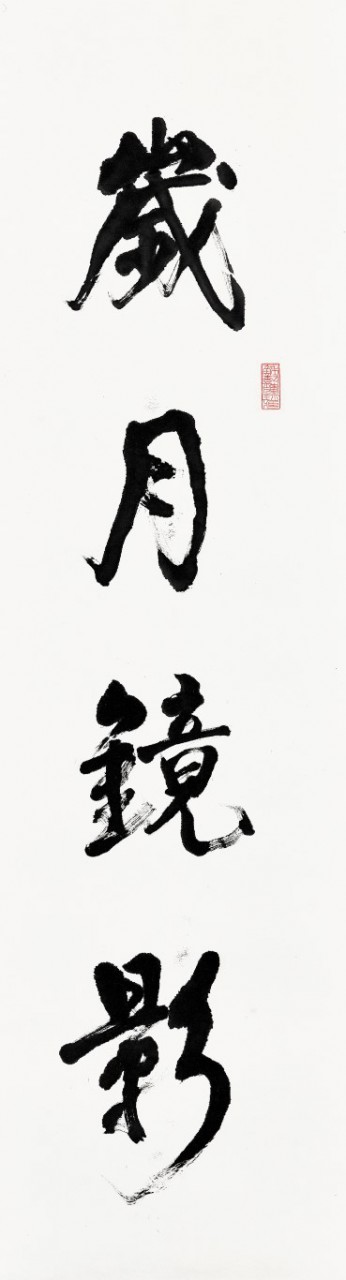 歲月鏡影